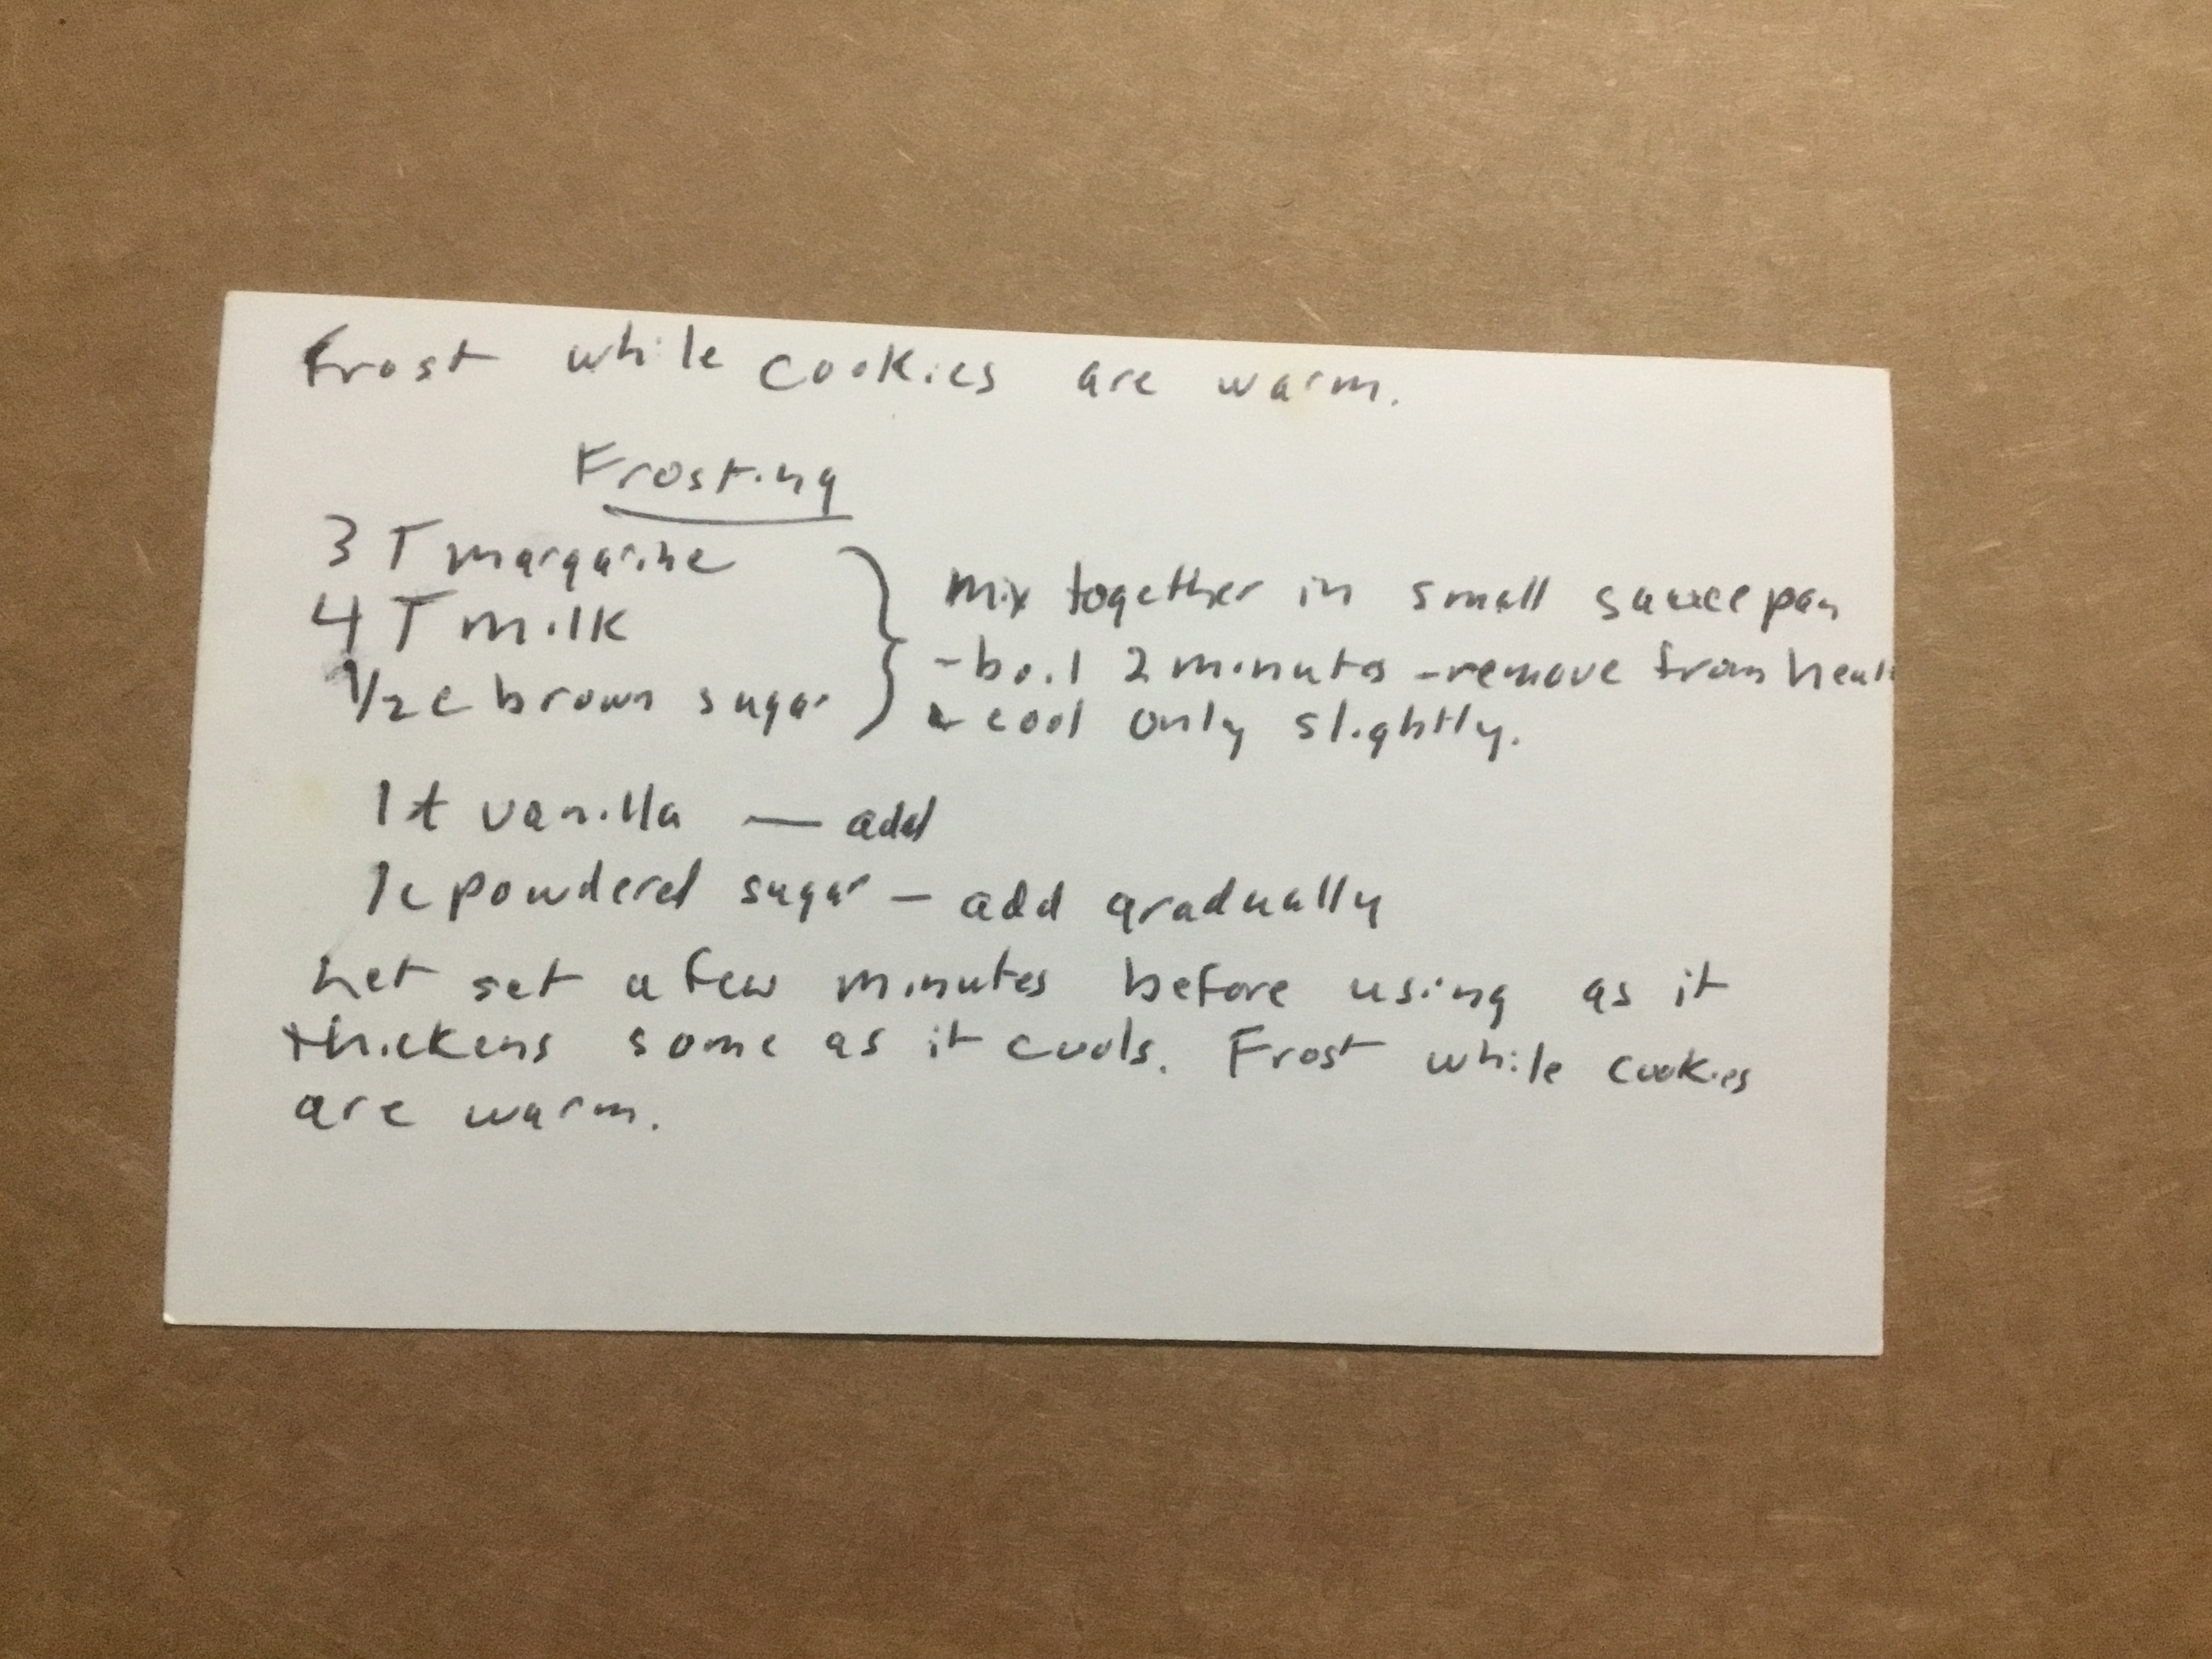 Frost while cookies are warm.
Frosting
3 T margarine
4 T milk
1/2 c brown sugar
mix together in small saucepan
- boil 2 minutes - remove from heat
& cool only slightly.
1 t vanilla — add
1 c powdered sugar - add gradually
Let set a few minutes before using as it
thickens some as it cools. Frost while cookies
are warm.